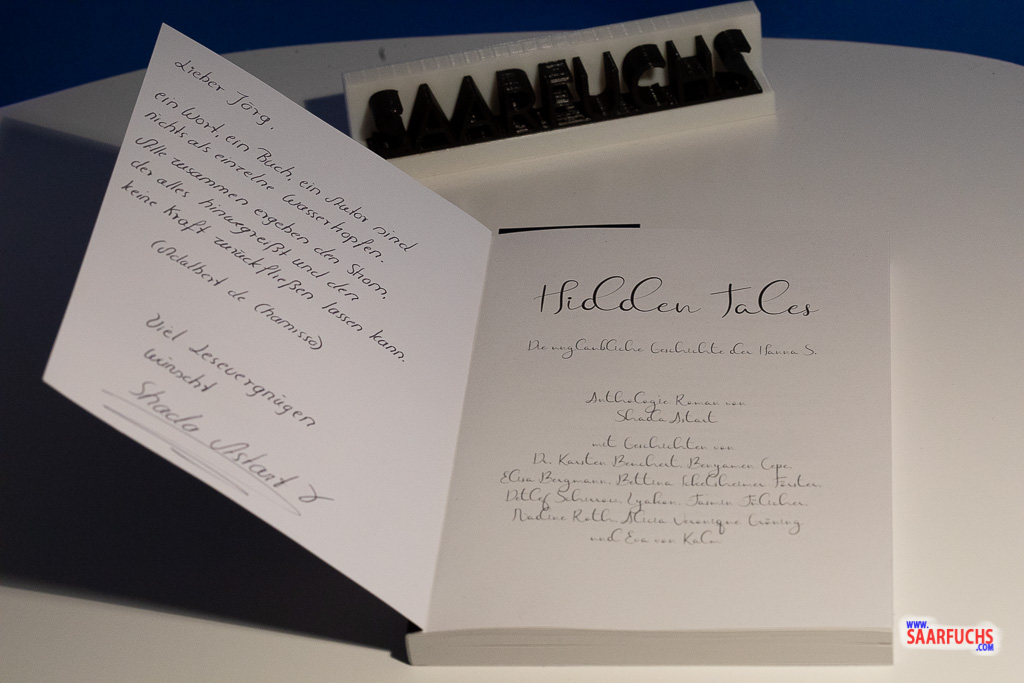 SAARFUCHS
Lieber Jörg,
ein Wort, ein Buch, ein Autor sind
nichts als einzelne Wassertropfen.
Alle zusammen ergeben den Strom,
der alles hinwegreißt und den
keine Kraft zurückfließen lassen kann.
(Adalbert de Chamisso)
Viel Lesevergnügen
wünscht
Shada Astart
Hidden Tales
Die unglaubliche Geschichte der Hanna S.
Anthologie Roman von
Shada Astart
mit Geschichten von
Dr. Karsten Beuchert, Benyamen Cepe,
Elisa Bergmann, Bettina Förster,
Detlef Lyakon, Jasmin
Nadine Roth, Alicia Veronique Gröning
und Eva von Kalm
WWW.
SAARFUCHS
.COM